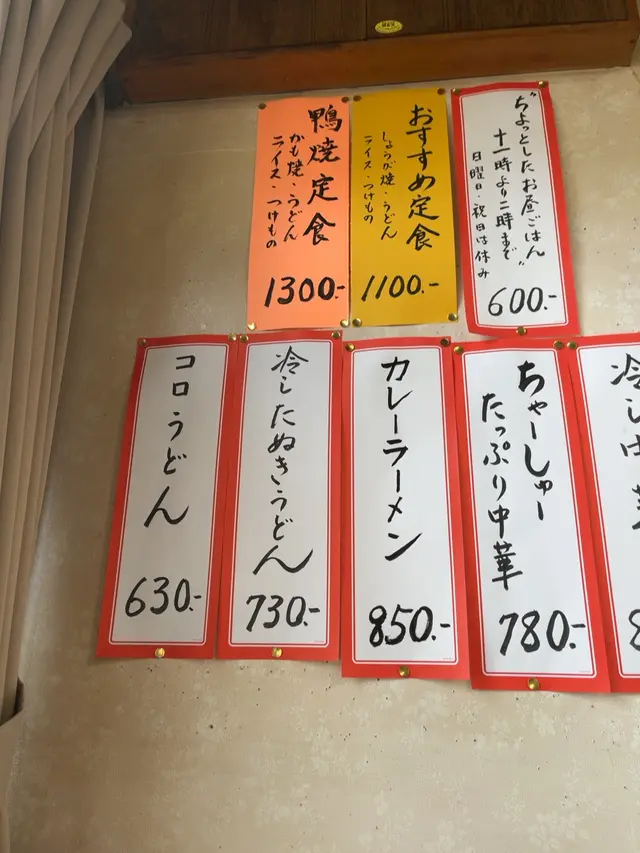 “ちょっとしたお昼ごはん”
十一時より二時まで
日曜日・祝日は休み
600.-
おすすめ定食
しょうが焼・うどん
ライス・つけもの
1100.-
鴨焼定食
かも焼・うどん
ライス・つけもの
1300.-
冷し中華
ちゃーしゅー
たっぷり中華
780.-
カレーラーメン
850.-
冷したぬきうどん
730.-
コロうどん
630.-